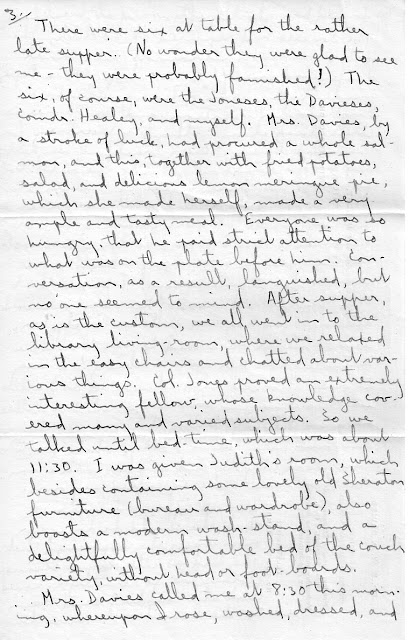 3.
There were six at table for the rather
late supper. (No wonder they were glad to see
me - they were probably famished!) The
six, of course, were the Joneses, the Davieses,
Comdr. Healey, and myself. Mrs. Davies, by
a stroke of luck, had procured a whole sal-
mon, and this, together with fried potatoes,
salad, and delicious lemon meringue pie,
which she made herself, made a very
ample and tasty meal. Everyone was so
hungry, that he paid strict attention to
what was on the plate before him. Con-
versation, as a result, languished, but
no one seemed to mind. After supper,
as is the custom, we all went in to the
library living-room, where we relaxed
in the easy chairs and chatted about var-
ious things. Col. Jones proved an extremely
interesting fellow, whose knowledge cov-
ered many and varied subjects. So we
talked until bed-time, which was about
11:30. I was given Judith's room, which
besides containing some lovely old Sheraton
furniture (bureau and wardrobe), also
boasts a modern wash-stand, and a
delightfully comfortable bed of the couch
variety, without head or foot-boards.
Mrs. Davies called me at 8:30 this morn-
ing, whereupon I rose, washed, dressed, and